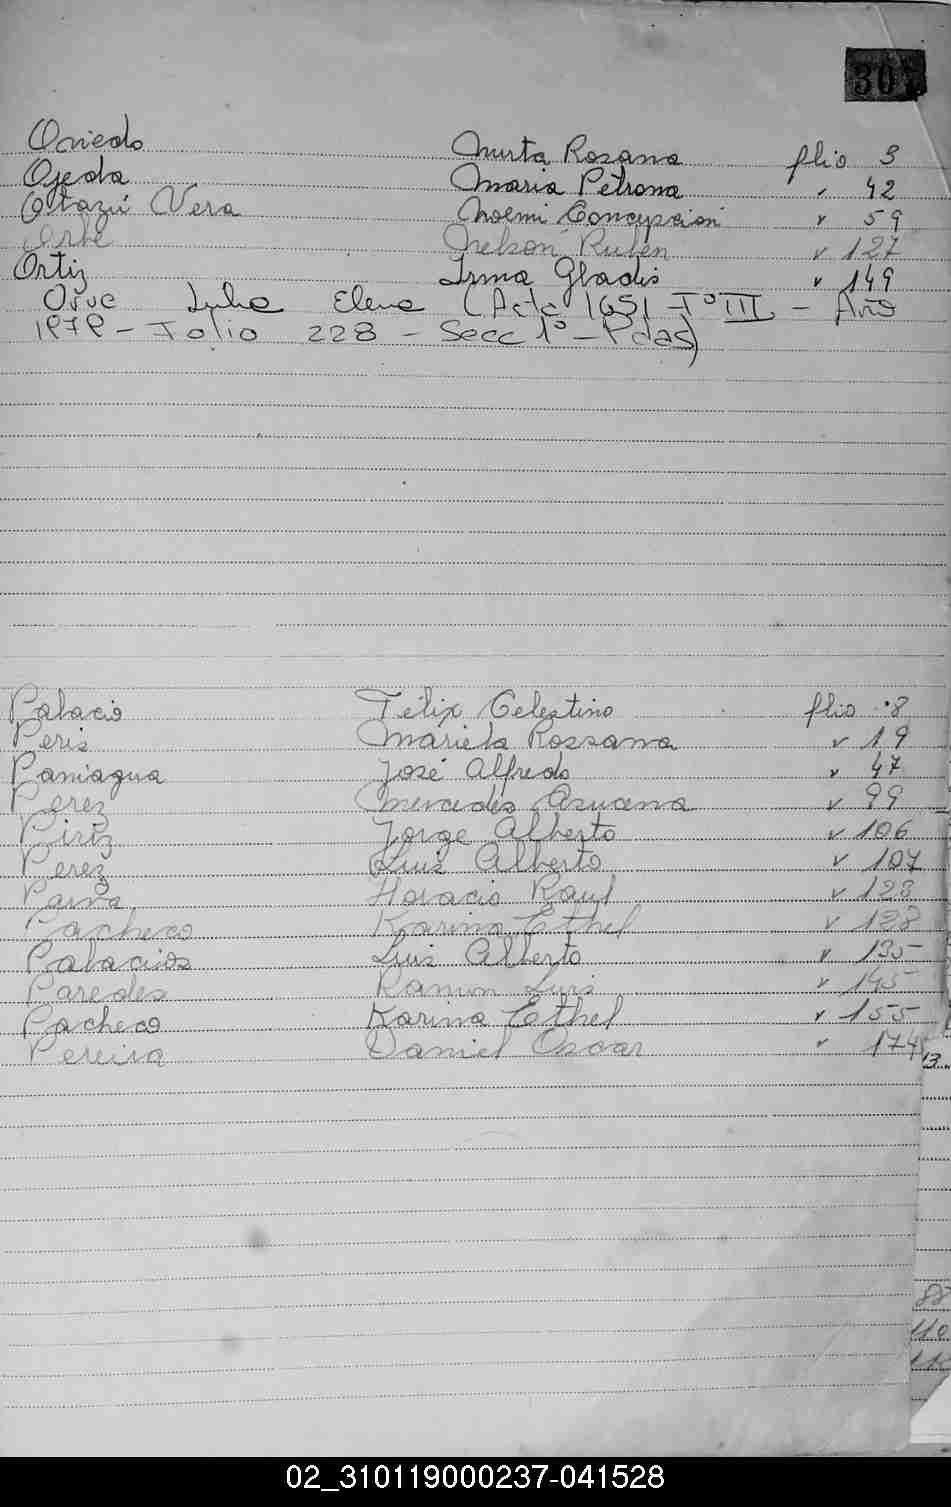 30
Oviedo Mirta Rosana flio 3
Ojeda Maria Petrona " 42
Otazú Vera Noemi Concepcion " 59
Orbe Nelson Ruben " 127
Ortiz Irma Gladis " 149
Julia Elena (Acta 1651 Tº III - Año
1979 - Folio 228 - Secc 1º - Pdas)
Palacio Félix Celestino flio 8
Peris Mariela Rossana " 19
Paniagua José Alfredo " 47
Perez Mercedes Azucena " 99
Piriz Jorge Alberto " 106
Perez Luis Alberto " 107
Parna Horacio Raul " 123
Pacheco Karina Ethel " 128
Palacios Luis Alberto " 135
Paredes Ramon Luis " 145
Pacheco Karina Ethel " 155
Pereira Daniel Oscar " 174
13
88
110
02_310119000237-041528